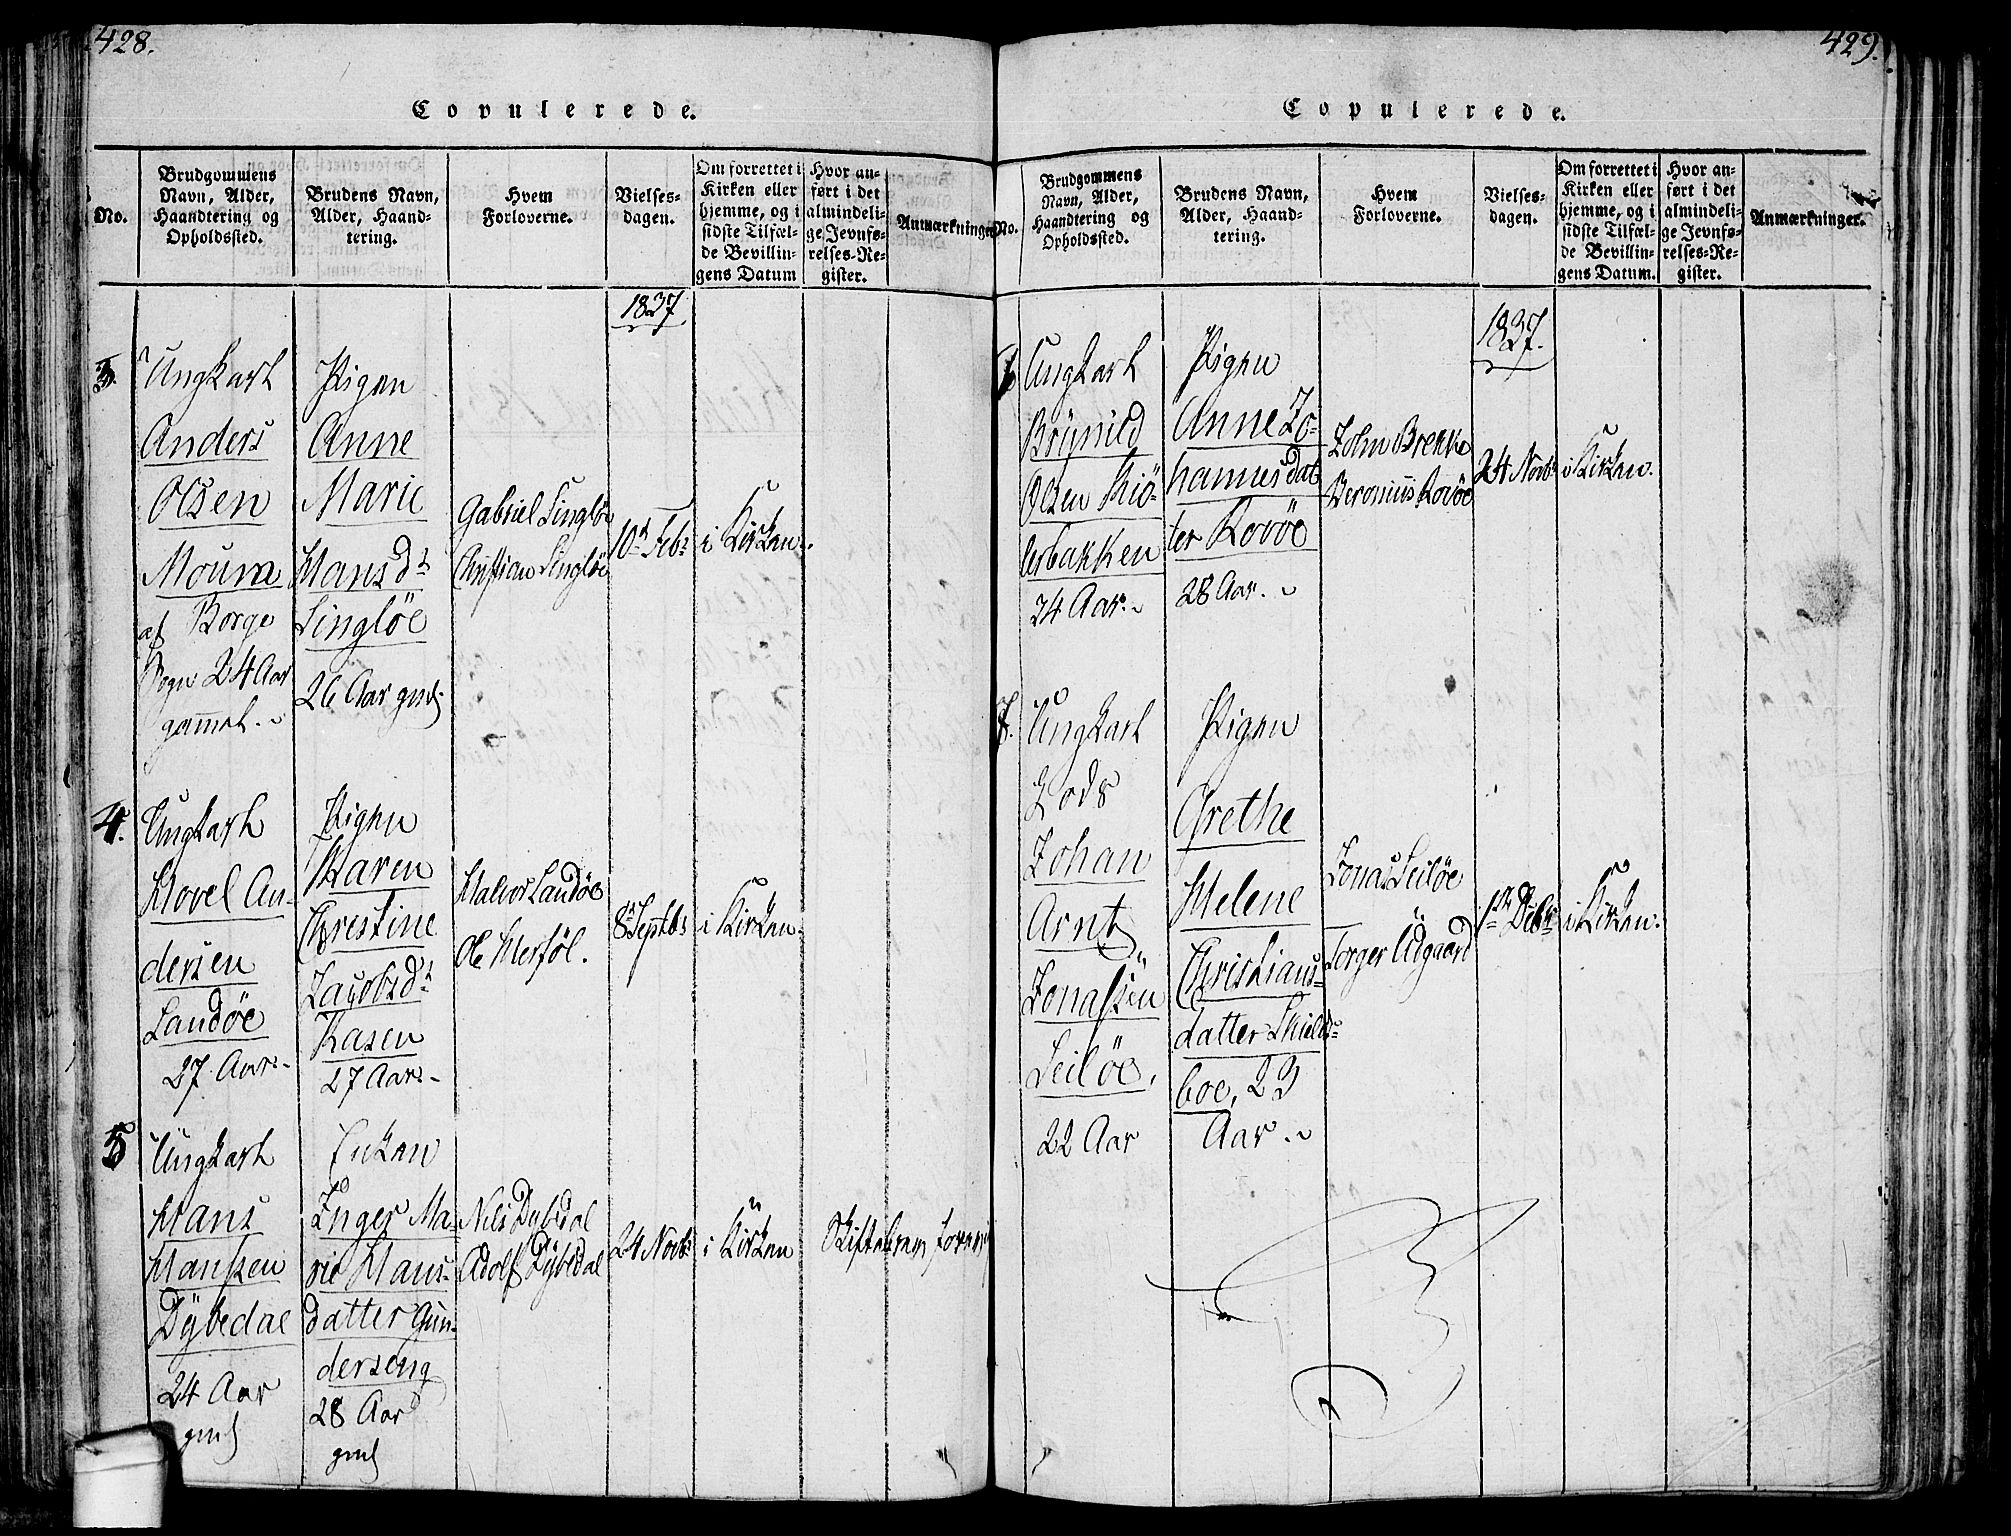 428.
Copulerede.
No.
Brudgommens
Navn, Alder,
Haandtering og
Opholdssted.
Brudens Navn,
Alder, Haand-
tering.
Hvem
Forloverne.
Vielses-
dagen.
Om forrettet i
Kirken eller
hjemme, og i
sidste Tilfæl-
de Bevillin-
gens Datum
Hvor an-
ført i det
almindeli-
ge Jevnfø-
relses-Re-
gister.
Anmærkninger.
1837
3.
Ungkarl
Anders
Olsen
Moum
af Borge
Sogn 24 Aar
gammel.
Pigen
Anne
Marie
Hansdr
Singløe
26 Aar gml
Gabriel Singløe
Christian Singløe
10de Febr
i Kirken.
4.
Ungkarl
Hovel An-
dersen
Landöe
27 Aar.
Pigen
Karen
Christine
Jacobsdr
Kasen
27 Aar.
Halvor Landöe
Ole Herföl.
8de Septbr
i Kirken.
5
Ungkarl
Hans
Hanssen
Dÿbedal
24 Aar
gml
Enken
Inger Ma-
rie Hans-
datter Gun-
derseng
28 Aar
gml
Nils Dybedal
Adolf Dybedal
24 Novbr
i Kirken
Skiftebrev foreviist
429.
Copulerede.
No.
Brudgommens
Navn, Alder,
Haandtering og
Opholdssted.
Brudens Navn,
Alder, Haand-
tering.
Hvem
Forloverne.
Vielses-
dagen.
Om forrettet i
Kirken eller
hjemme, og i
sidste Tilfæl-
de Bevillin-
gens Datum.
Hvor an-
ført i det
almindeli-
ge Jevnfø-
relses-Re-
gister.
Anmærkninger.
1837.
6
Ungkarl
Brÿnild
Olsen Kiö-
lerbakken
24 Aar.
Pigen
Anne Jo-
hannesdat
ter Rovöe
28 Aar.
John Brekke
Rovöe
24 Novbr
i Kirken.
7.
Ungkarl
Lods
Johan
Arnt
Jonassen
Seilöe,
22 Aar
Pigen
Grethe
Helene
Christians-
datter Skiels-
boe, 23
Aar.
Jonas Seilöe
Torger Ødgaard
1te Decbr
i Kirken.